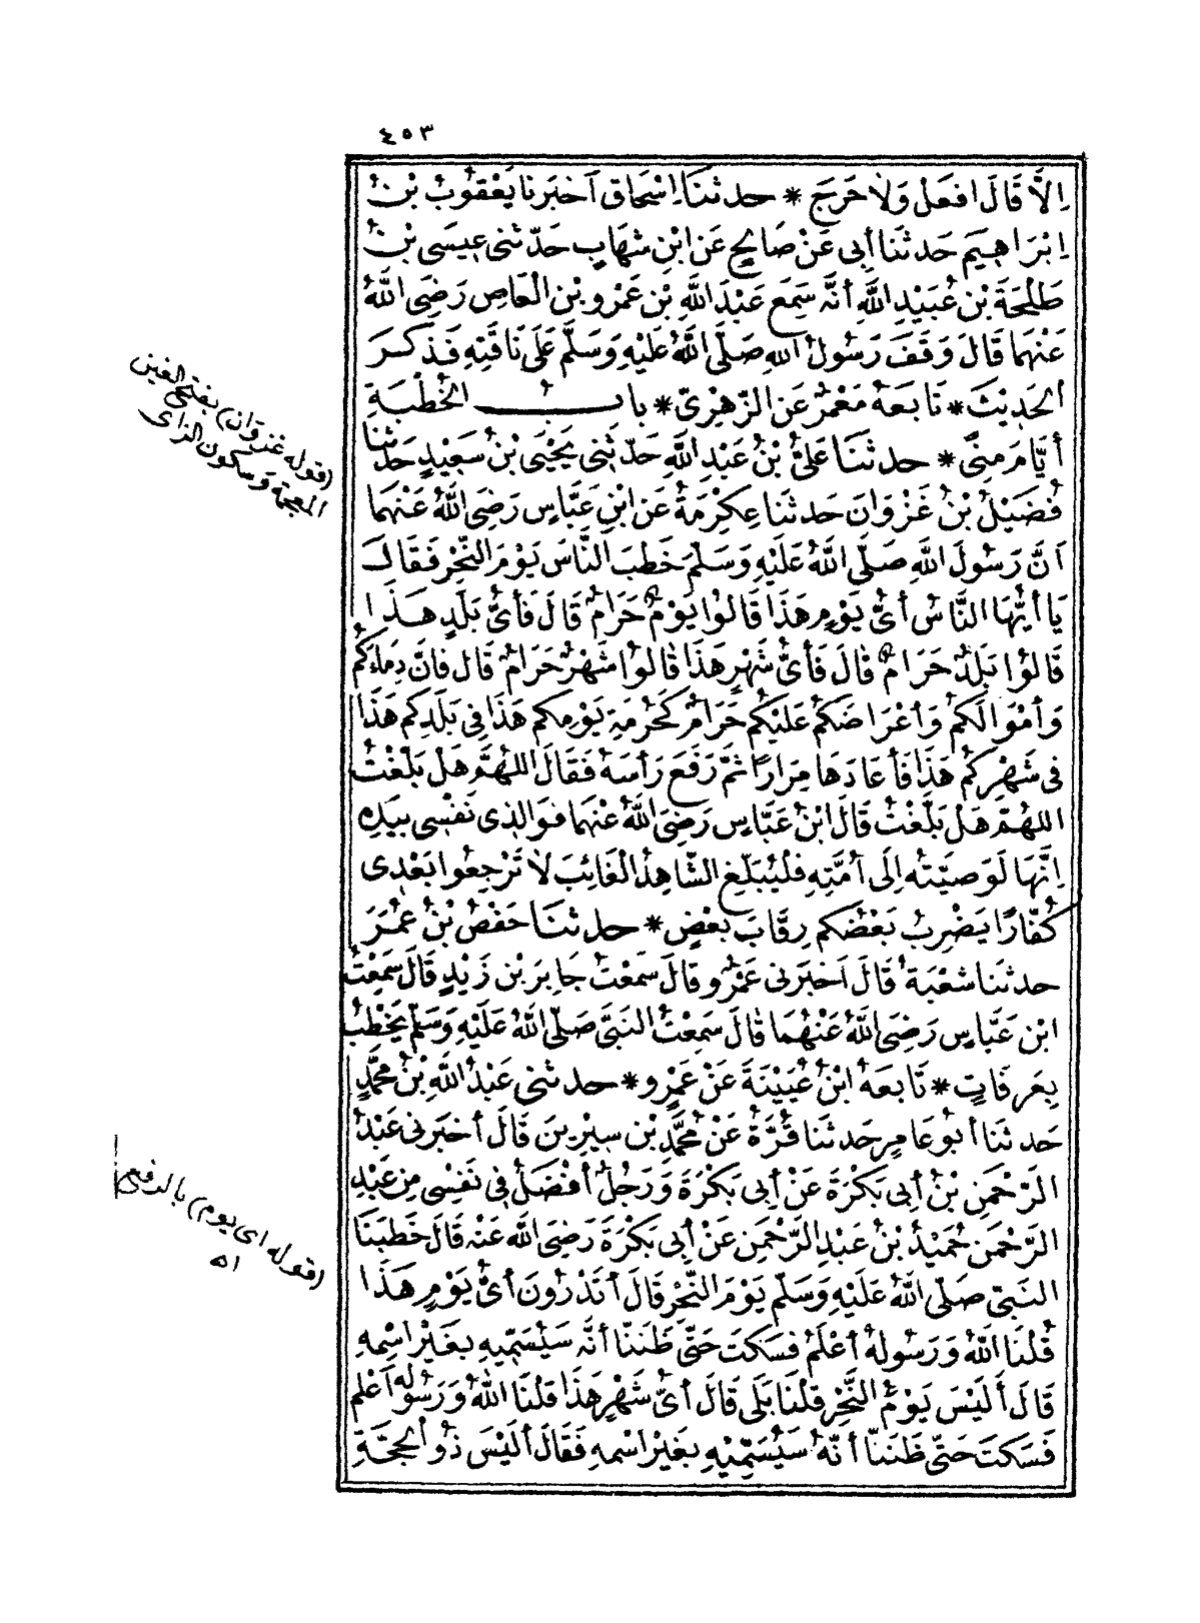 ٤٥٣
اِلَّا قَالَ افعَلْ وَلَا حَرَجَ * حدثنَا اِسْحَاق أَخبَرنا يَعْقوُبُ بْنُ
اِبْرَاهِيمَ حَدثنَا أبِى عَنْ صَالِحٍ عَنِ ابْنِ شهَابٍ حَدّثنى عِيسَى بْنُ
طَلْحَةَ بْنِ عُبَيْدِ اللَّهِ أنَّه سَمِعَ عَبْدَ اللَّهِ بْنَ عَمْرو بْنِ الْعَاصِ رَضِىَ اللَّهُ
عَنْهمَا قالَ وَقفَ رَسُولُ اللهِ صَلَّى اللَّهُ عَلَيْهِ وَسَلَّم عَلَى نَاقَتِهِ فَذكَرَ
الحَدِيْثَ * تَابعَهُ مَعْمَرٌ عَنِ الزّهْرِىّ * بابُ الخُطْبَةِ
أيَّامَ مِنًى * حدثنَا عَلىُّ بْنُ عَبْدِ اللَّهِ حَدّثنِى يَحْيَى بْنُ سَعِيْدٍ حَدثنَا
فُضَيْلُ بْنُ غَزْوَانَ حَدثنَا عِكْرِمَةُ عَنِ ابْنِ عَبَّاسٍ رَضِىَ اللَّهُ عَنْهمَا
اَنَّ رَسُولَ اللَّهِ صَلّى اللَّهُ عَلَيْهِ وَسَلّمَ خَطبَ النَّاسَ يَوْمَ النّحْرِ فَقَالَ
يَا أيُّهَا النَّاسُ أىُّ يَوْمٍ هَذَا قَالوُا يَوْمٌ حَرَامٌ قَالَ فَأىُّ بَلَدٍ هَذَا
قَالوُا بَلَدٌ حَرَامٌ قَالَ فَأىُّ شَهْرٍ هَذَا قَالوُا شَهْرٌ حَرَامٌ قَالَ فاِنَّ دِمَاءَكُمْ
وَأمْوَالَكمُ وَأعْرَاضَكمُ عَلَيْكُم حَرَامٌ كَحُرْمَةِ يَوْمِكم هَذَا فِى بَلَدِكم هَذَا
فى شَهْرِكُم هَذَا فَأعَادَهَا مِرَارًا ثمَّ رَفَعَ رَأسَهُ فَقَالَ اللهُمَّ هَلْ بَلّغْتُ
اللهُمَّ هَلْ بَلَّغْتُ قَالَ ابْنُ عَبّاسٍ رَضِىَ اللَّهُ عَنْهمَا فوَالذِى نَفْسِى بِيَدِهِ
اِنَّهَا لَوَصيَّتهُ اِلَى أمَّتِهِ فَلْيُبَلّغِ الشّاهِدُ الْغَائِبَ لَا تَرْجِعُوا بَعْدِى
كُفّارًا يَضْرِبُ بَعْضُكم رِقَابَ بَعْضٍ * حدثنَا حَفْصُ بْنُ عُمَرَ
حدثنَا شعْبَةُ قَالَ أَخبَرَنى عَمْرٌو قالَ سَمعْتُ جَابِرَ بْنَ زَيْدٍ قالَ سَمِعْتُ
ابْنَ عَبَّاسٍ رَضِىَ اللَّهُ عَنْهُمَا قالَ سَمِعْتُ النَبىَّ صَلّى اللَّهُ عَلَيْهِ وَسَلّم يَخْطُبُ
بِعَرفَاتٍ * تَابعَهُ ابْنُ عُيَيْنَةَ عَنْ عَمْرٍو * حدثنى عَبْدُ اللَّهِ بْنُ مُحَمَّدٍ
حَدثنَا أبوُ عَامِرٍ حَدثنَا قُرَّةُ عَنْ مُحمَّدِ بْنِ سِيْرِينَ قَالَ أخبَرنى عَبْدُ
الرَّحْمَنِ بْنُ أبِى بَكْرَةَ عَنْ أبِى بَكْرَةَ وَرَجُلٌ أفْضَلُ فى نَفْسِى مِنْ عَبْدِ
الرَّحْمَنِ حُمَيْدُ بْنُ عَبْدِ الرَّحْمَنِ عَنْ أبِى بَكْرَةَ رَضِىَ اللَّه عَنْه قَالَ خَطبَنَا
النَبىّ صَلّى اللَّهُ عَلَيْهِ وَسَلّم يَوْمَ النّحْرِ قَالَ أتَدْرُونَ أىُّ يَوْمٍ هَذَا
قُلْنَا اللَّهُ وَرَسُولهُ أعْلَمُ فسَكَتَ حَتّى ظَنَنّا أنَّه سَيُسَمّيهِ بغَيْرِ اسْمِهِ
قَالَ أَلَيْسَ يَوْمُ النَّحْرِ قلْنَا بَلَى قَالَ أىُّ شَهْرٍ هَذَا قلْنَا اللهُ وَرَسُوله أعْلم
فَسَكتَ حَتّى ظَنَنّا أنّهُ سَيُسَمّيْهِ بغَيْرِ اسْمهِ فَقَالَ ألَيْسَ ذُو الْحِجَّةِ
(قوله غزوان) بفتح الغين
المعجمة وسكون الزاى
(قوله اى يوم) بالرفع
اه